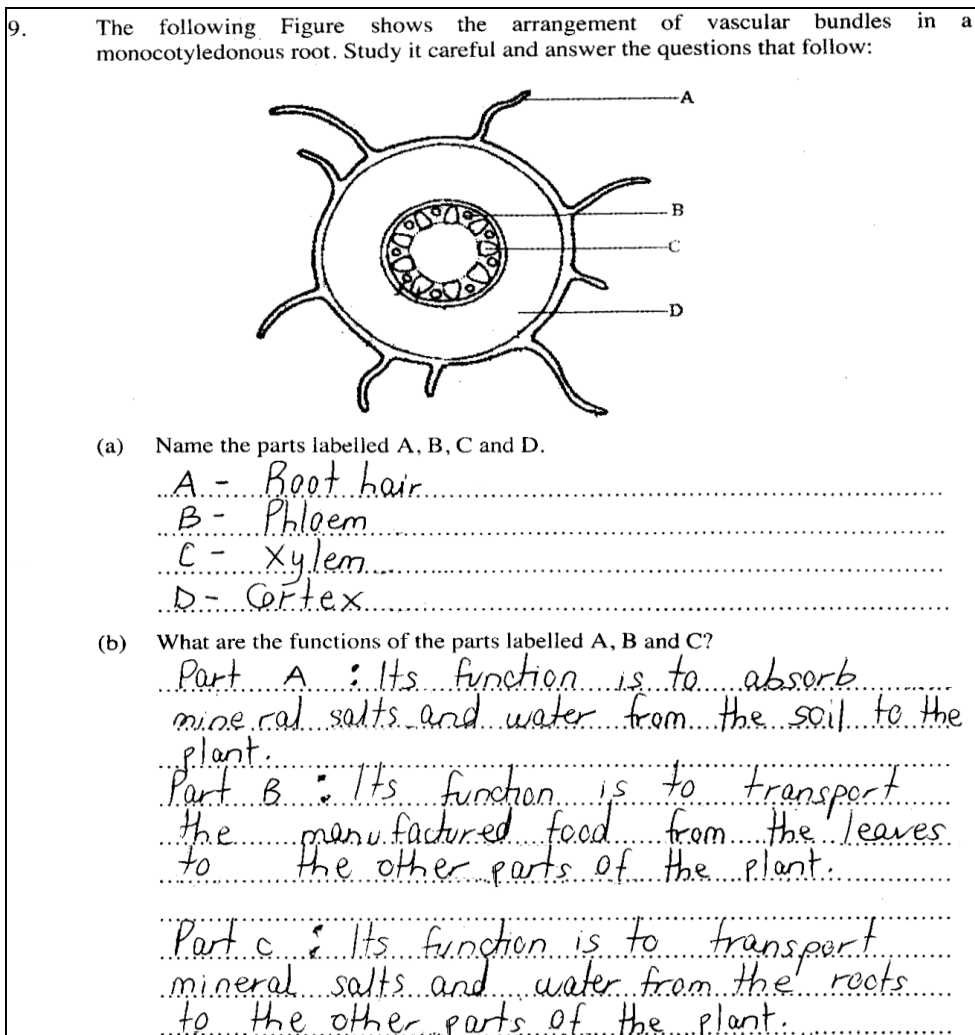 9. The following Figure shows the arrangement of vascular bundles in a
monocotyledonous root. Study it careful and answer the questions that follow:
A
B
C
D
(a) Name the parts labelled A, B, C and D.
A - Root hair
B - Phloem
C - Xylem
D - Cortex
(b) What are the functions of the parts labelled A, B and C?
Part A : Its function is to absorb
mineral salts and water from the soil to the
plant.
Part B : Its function is to transport
the manufactured food from the leaves
to the other parts of the plant.
Part c : Its function is to transport
mineral salts and water from the roots
to the other parts of the plant.